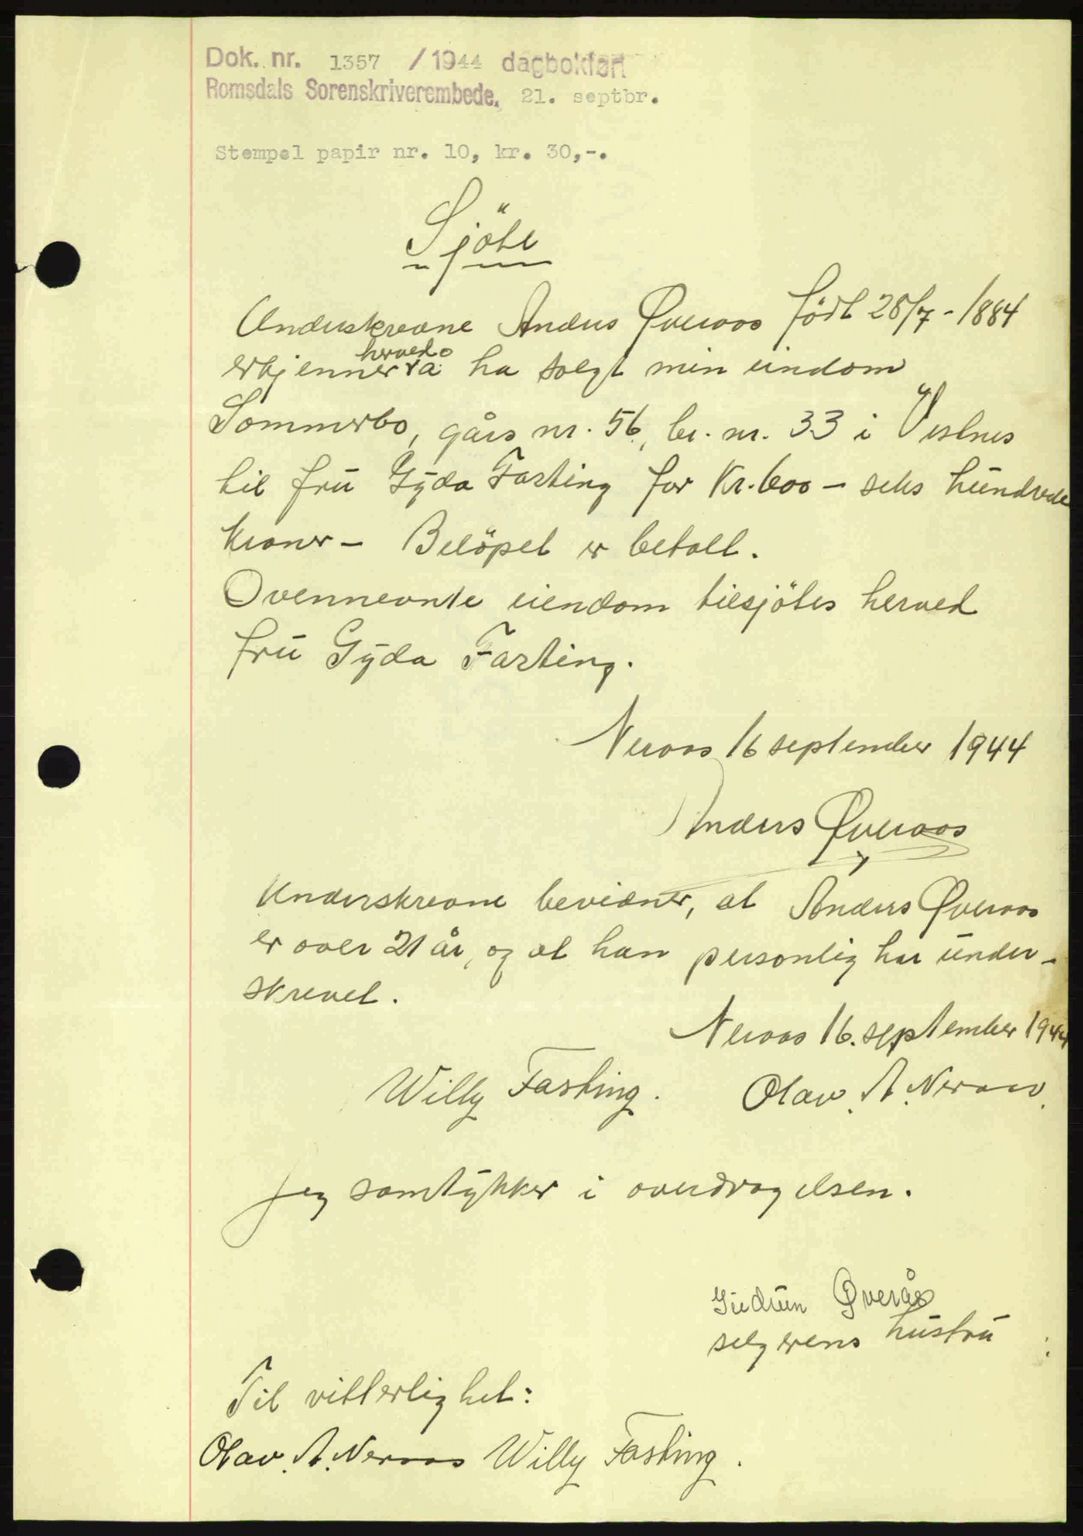 Dok. nr. 1357 /1944 dagbokført
Romsdals Sorenskriverembede. 21. septbr.
Stempel papir nr. 10, kr. 30,-.
Sjöte
Underskrevne Anders Øveraas födt 28/7 - 1884
herved
erkjenner å ha solgt min eindom
Sommerbo, gårs nr. 56, br. nr. 33 i Vestnes
til fru Gyda Fasting for Kr. 600 - seks hundrede
kroner - Belöpet er betalt.
Ovennevnte eiendom tilsjötes herved
fru Gyda Fasting.
Neraas 16 september 1944
Anders Øveraas
Underskrevne bevidner, at Anders Øveraas
er over 21 år, og at han personlig har under-
skrevet.
Neraas 16. september 1944
Willy Fasting. Olav. A. Neraas.
Jeg samtykker i overdragelsen.
Gudrun Øverås
selgerens hustru
Til vitterlighet:
Olav. A. Neraas Willy Fasting.